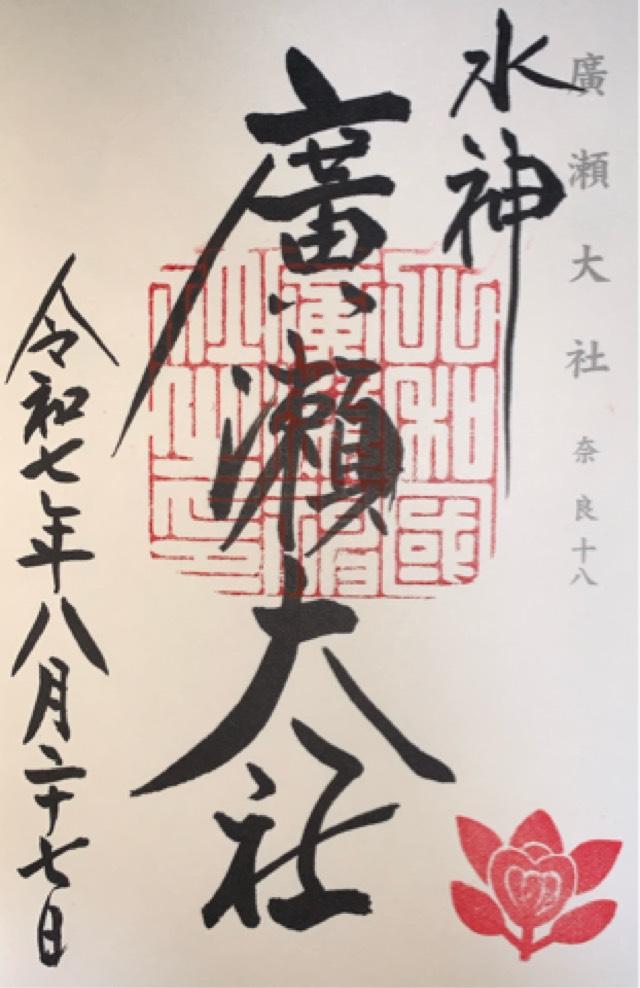 廣瀬大社 奈良十八
水神
廣瀬大社
令和七年八月二十七日